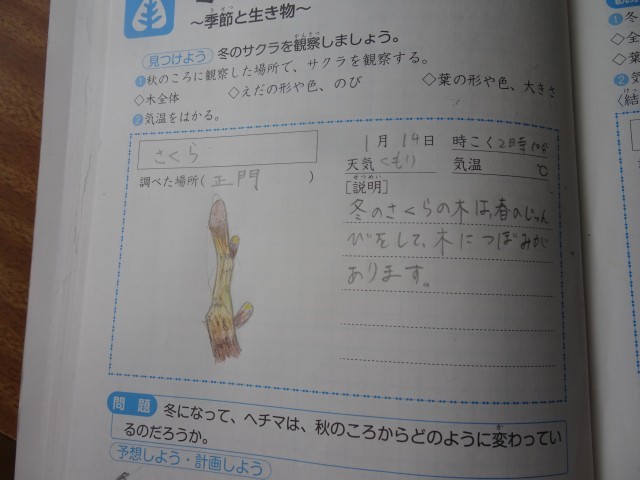 ～季節と生き物～
見つけよう 冬のサクラを観察しましょう。
❶秋のころに観察した場所で、サクラを観察する。
◇木全体 ◇えだの形や色、のび ◇葉の形や色、大きさ
❷気温をはかる。
さくら
1月19日 時こく2時10分
天気 くもり 気温 ℃
調べた場所(正門)
[説明]
冬のさくらの木は、春のじゅん
びをして、木につぼみが
あります。
問題 冬になって、ヘチマは、秋のころからどのように変わってい
るのだろうか。
予想しよう・計画しよう